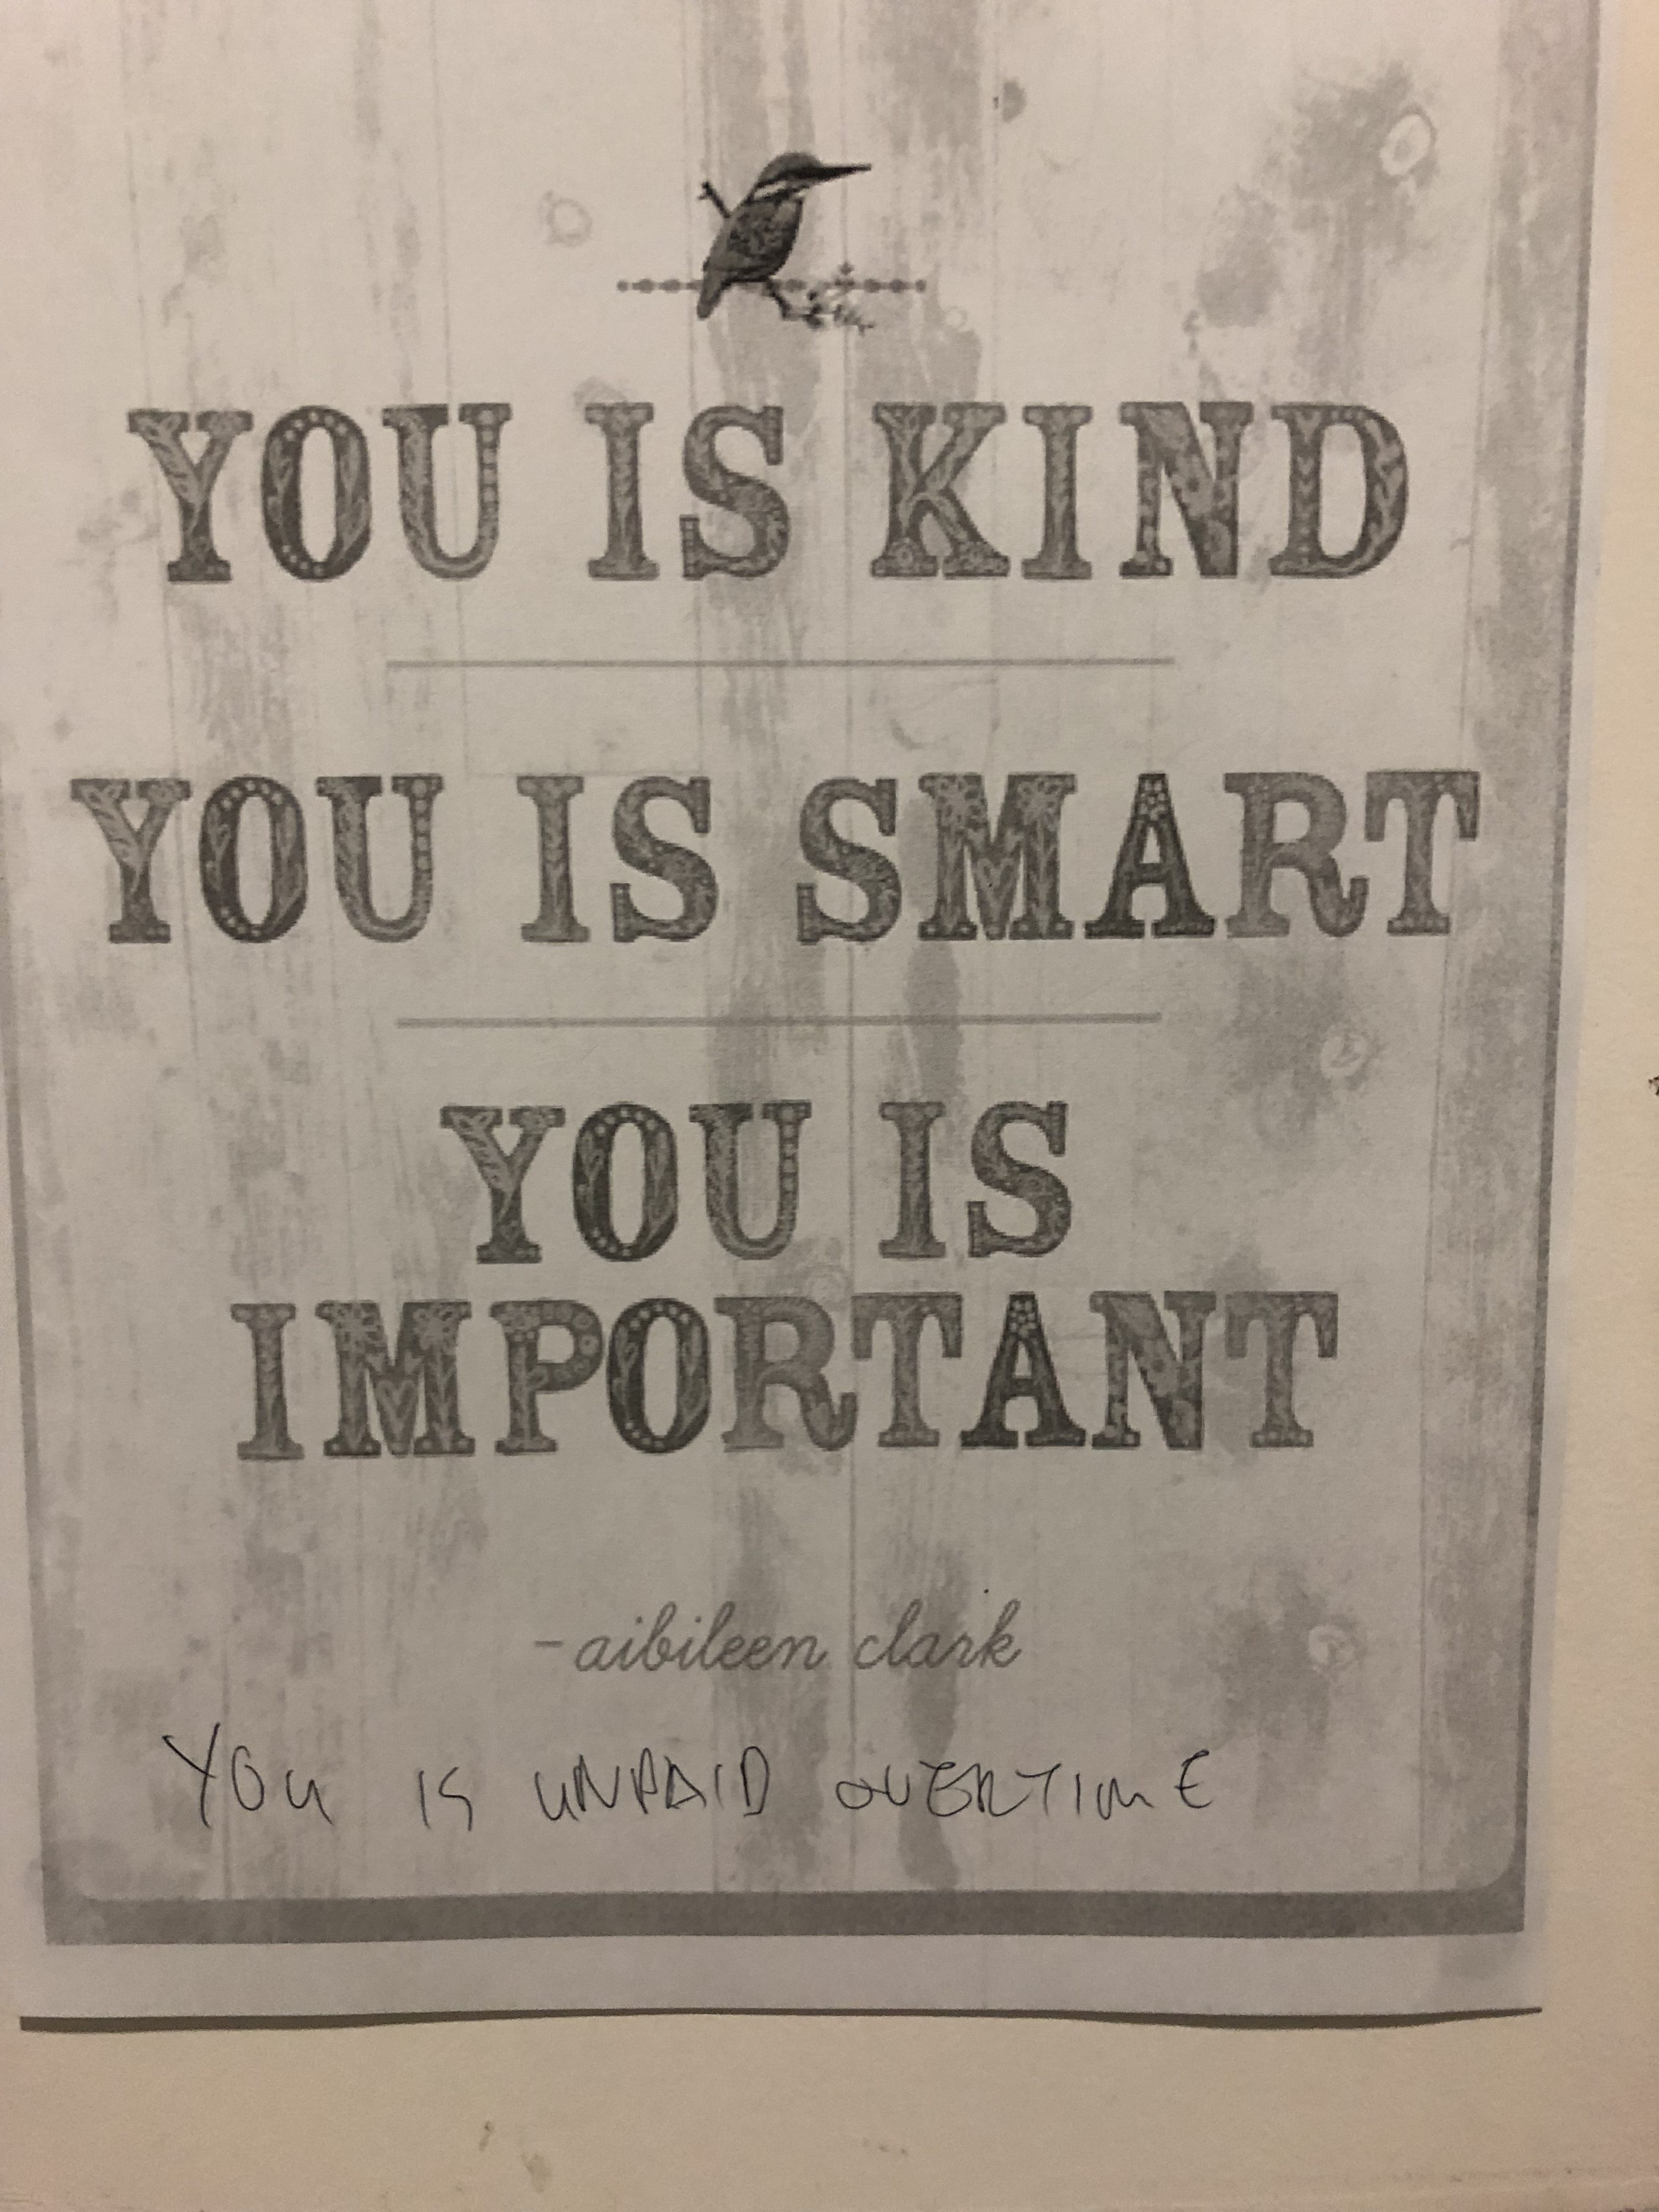 YOU IS KIND
YOU IS SMART
YOU IS
IMPORTANT
-aibileen clark
YOU IS UNPAID OVERTIME